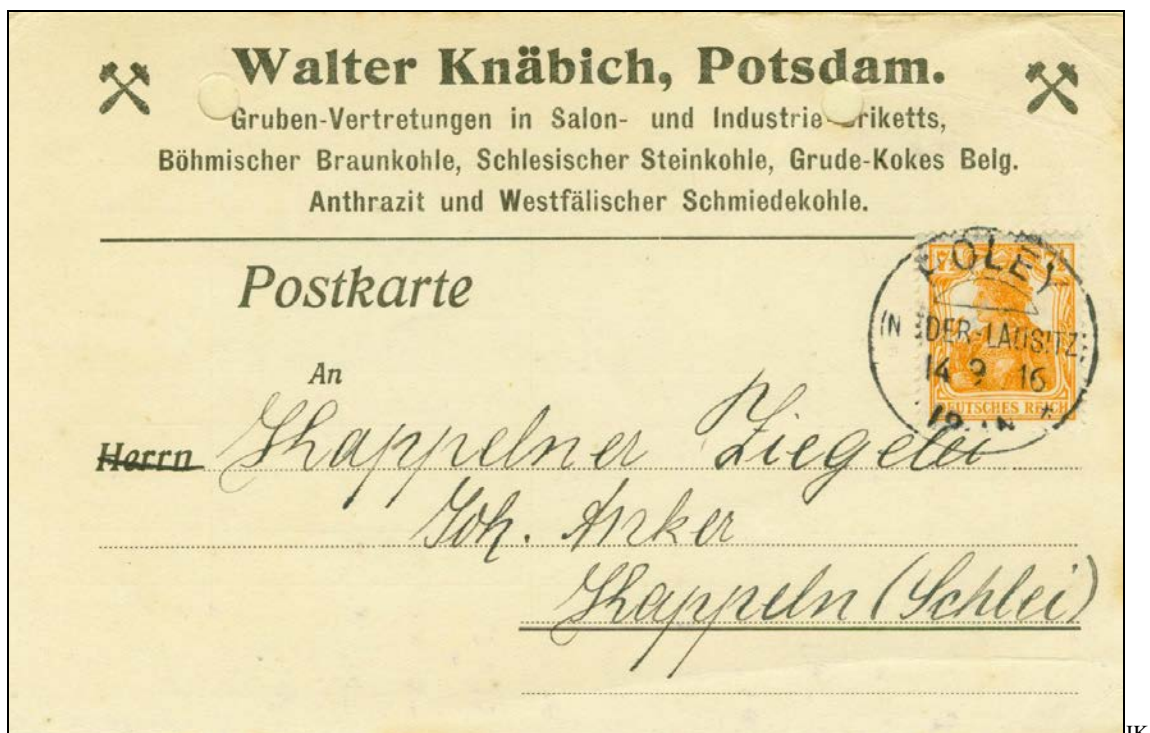 Walter Knäbich, Potsdam.
Gruben-Vertretungen in Salon- und Industrie-Briketts,
Böhmischer Braunkohle, Schlesischer Steinkohle, Grude-Kokes Belg.
Anthrazit und Westfälischer Schmiedekohle.
Postkarte
DEUTSCHES REICH
DER-LAUSITZ)
14 9 16
An
Herrn Kappelner Ziegelei
Joh. Anker
Kappeln (Schlei)
JK